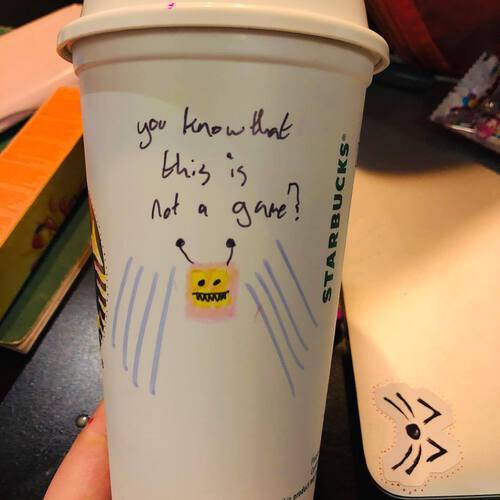 you know that
this is
not a game?
STARBUCKS®